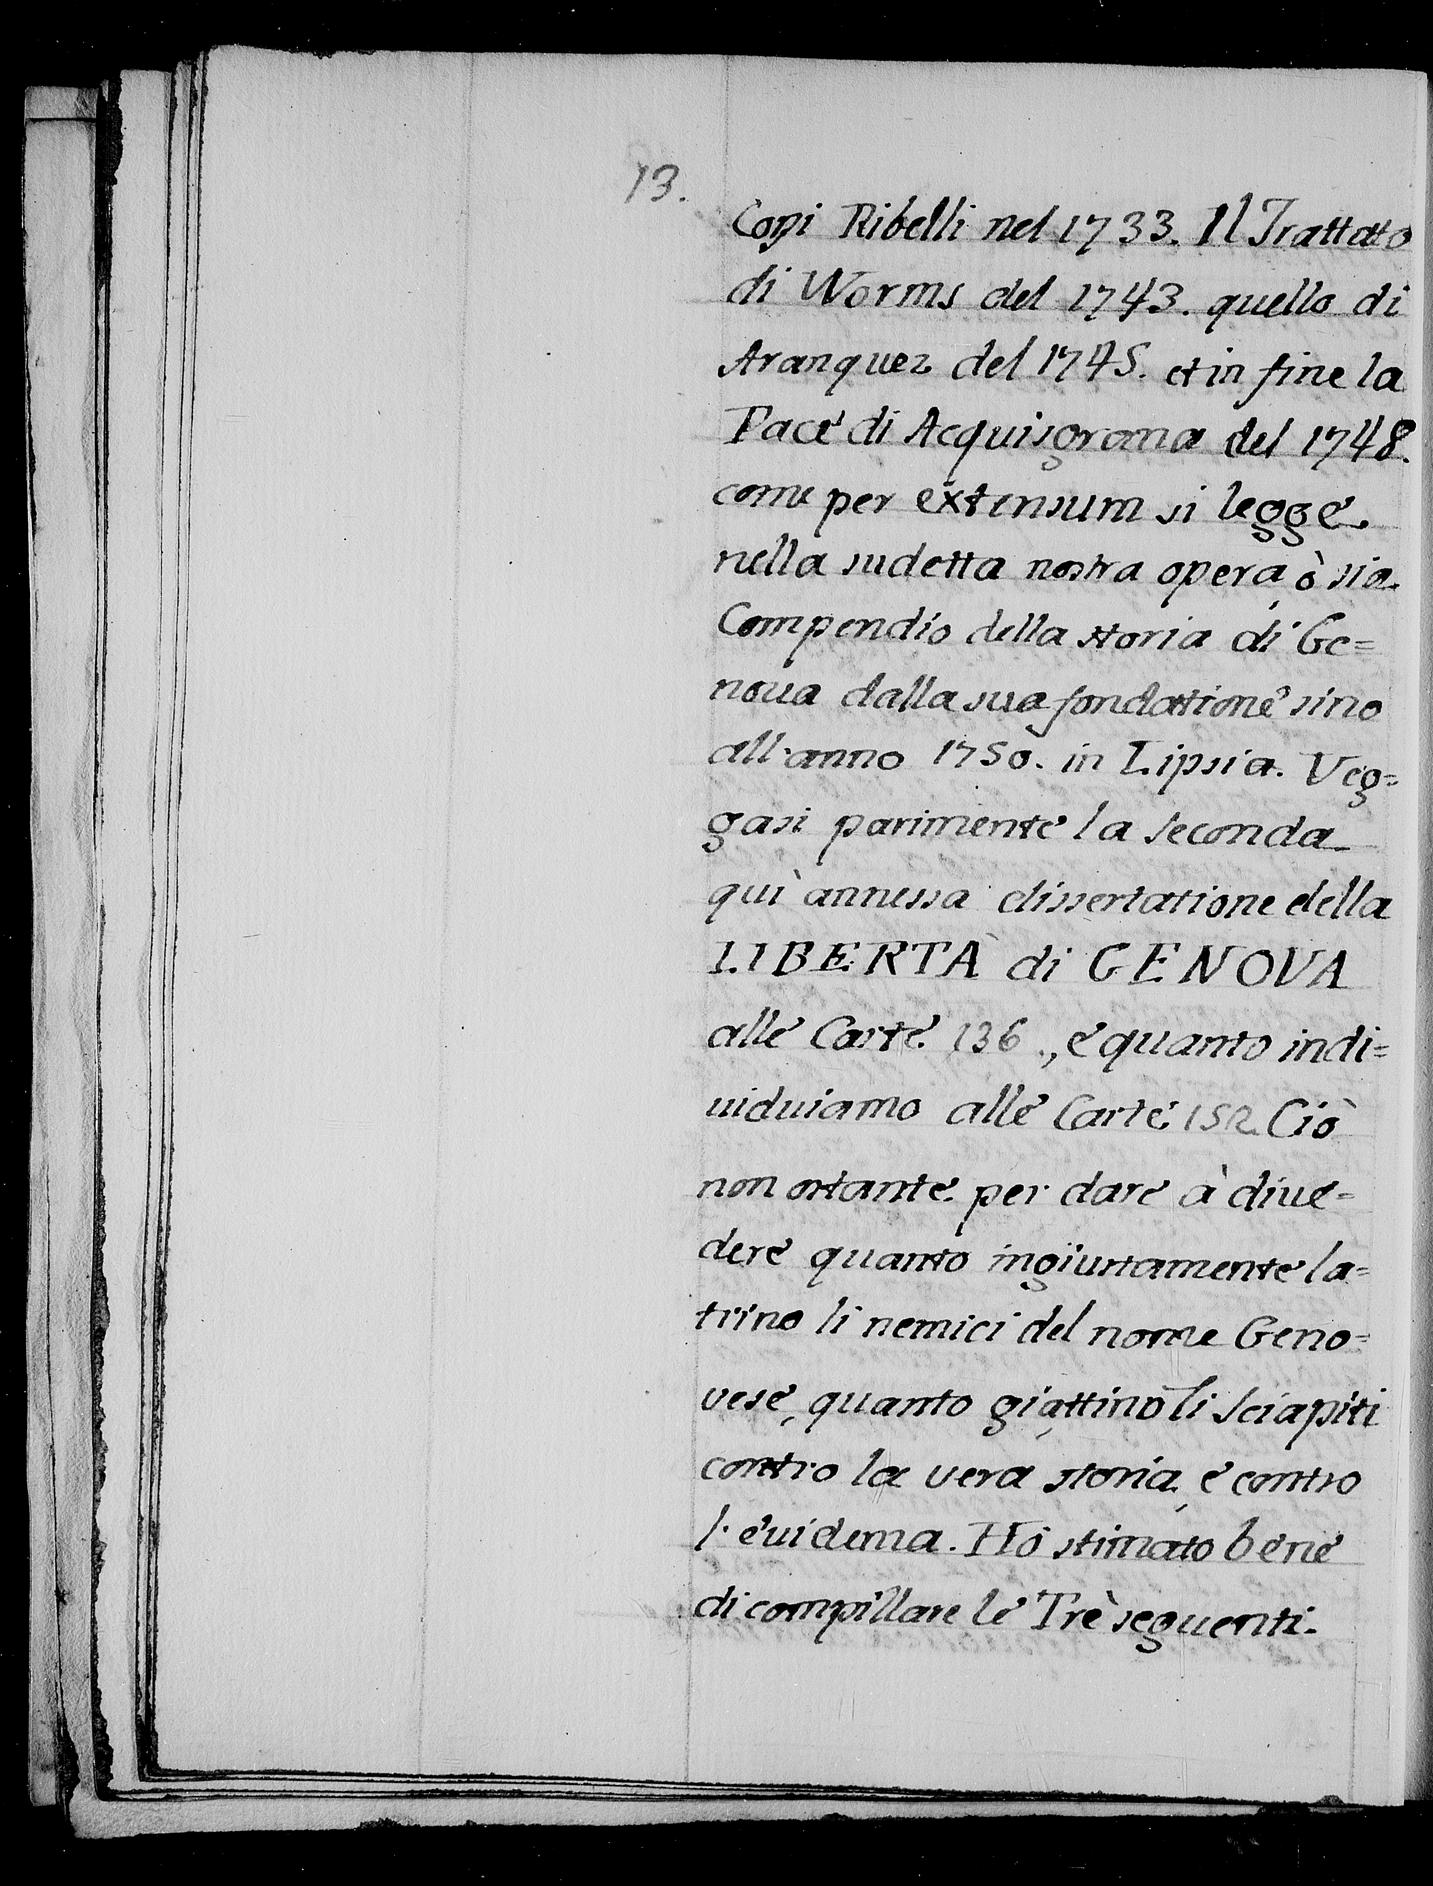 13.
Copi Ribelli nel 1733. Il Trattato
di Worms del 1743. quello di
Aranquez del 1745. et in fine la
Pace di Acquisgrana del 1748.
come per extensum si legge
nella sudetta nostra opera, ò sia
Compendio della storia di Ge=
noua dalla sua fondatione sino
all'anno 1750. in Lipsia. Veg=
gasi parimente la seconda
quì annessa dissertatione della
LIBERTÀ di GENOVA
alle Carte 136., e quanto indi=
uiduiamo alle Carte 152. Ciò
non ostante per dare à diue=
dere quanto ingiustamente la=
trino li nemici del nome Geno=
vese, quanto giattino li sciapiti
contro la vera storia, e contro
l'euidenza. Hò stimato bene
di compillare le Trè seguenti.